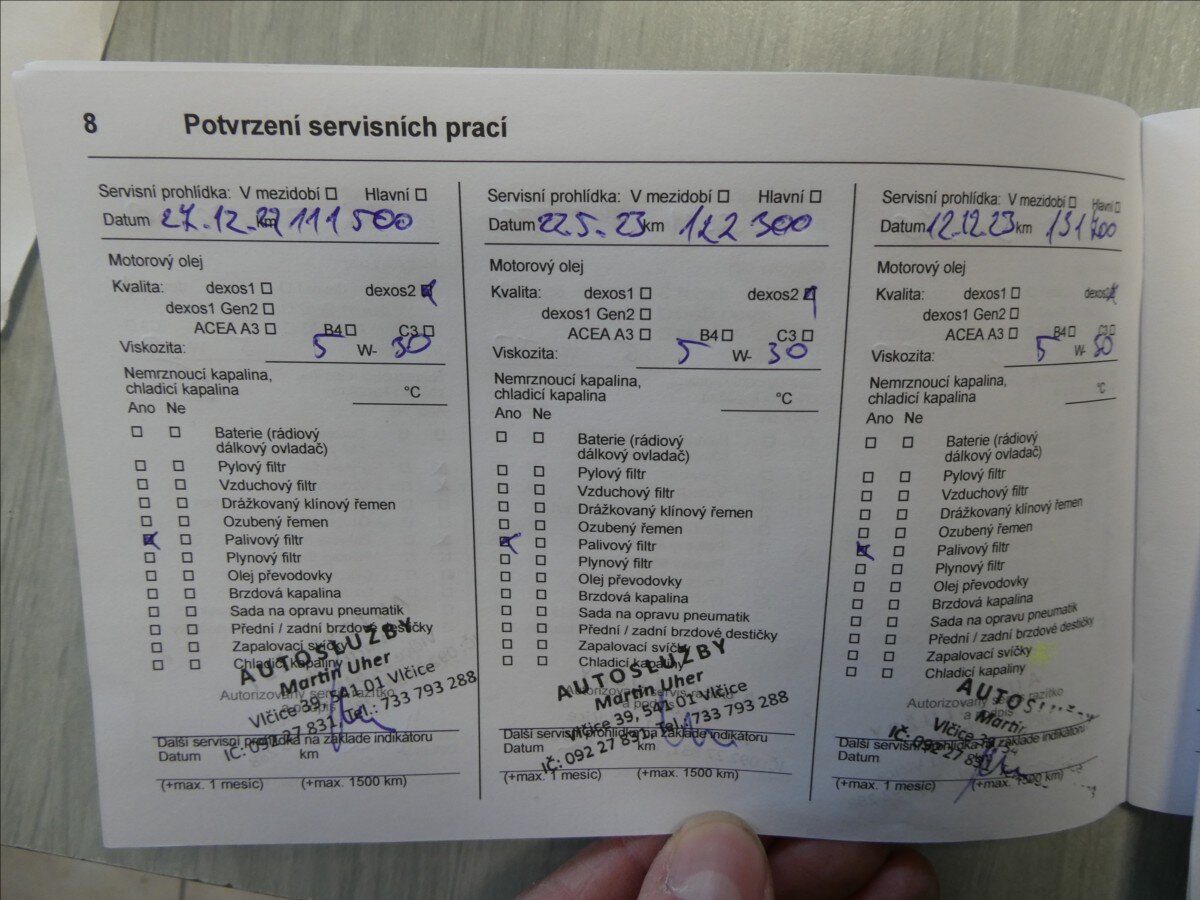 8 Potvrzení servisních prací
Servisní prohlídka: V mezidobí Hlavní
Datum 27.12.22 km 111 500
Motorový olej
Kvalita: dexos1 dexos2
dexos1 Gen2
ACEA A3 B4 C3
Viskozita: 5 W- 30
Nemrznoucí kapalina,
chladicí kapalina °C
Ano Ne
Baterie (rádiový
dálkový ovladač)
Pylový filtr
Vzduchový filtr
Drážkovaný klínový řemen
Ozubený řemen
Palivový filtr
Plynový filtr
Olej převodovky
Brzdová kapalina
Sada na opravu pneumatik
Přední / zadní brzdové destičky
Zapalovací svíčky
Chladicí kapaliny
AUTOSLUŽBY
Martin Uher
Vlčice 39, 541 01 Vlčice
IČ: 092 27 831, Tel.: 733 793 288
Autorizovaný servis razítko
a podpis
Další servisní prohlídka na základě indikátoru
Datum km
(+max. 1 měsíc) (+max. 1500 km)
Servisní prohlídka: V mezidobí Hlavní
Datum 22.5.23 km 122 300
Motorový olej
Kvalita: dexos1 dexos2
dexos1 Gen2
ACEA A3 B4 C3
Viskozita: 5 W- 30
Nemrznoucí kapalina,
chladicí kapalina °C
Ano Ne
Baterie (rádiový
dálkový ovladač)
Pylový filtr
Vzduchový filtr
Drážkovaný klínový řemen
Ozubený řemen
Palivový filtr
Plynový filtr
Olej převodovky
Brzdová kapalina
Sada na opravu pneumatik
Přední / zadní brzdové destičky
Zapalovací svíčky
Chladicí kapaliny
AUTOSLUŽBY
Martin Uher
Vlčice 39, 541 01 Vlčice
IČ: 092 27 831, Tel.: 733 793 288
Autorizovaný servis razítko
a podpis
Další servisní prohlídka na základě indikátoru
Datum km
(+max. 1 měsíc) (+max. 1500 km)
Servisní prohlídka: V mezidobí Hlavní
Datum 12.12.23 km 131
Motorový olej
Kvalita: dexos1 dexos2
dexos1 Gen2
ACEA A3 B4 C3
Viskozita: 5 W- 30
Nemrznoucí kapalina,
chladicí kapalina °C
Ano Ne
Baterie (rádiový
dálkový ovladač)
Pylový filtr
Vzduchový filtr
Drážkovaný klínový řemen
Ozubený řemen
Palivový filtr
Plynový filtr
Olej převodovky
Brzdová kapalina
Sada na opravu pneumatik
Přední / zadní brzdové destičky
Zapalovací svíčky
Chladicí kapaliny
Martin
Vlčice 39, 54
IČ: 092 27 831
Autorizovaný razítko
a podpis
Další servisní prohlídka na základě indikátoru
Datum
(+max. 1 měsíc) (+max. 1500 km)